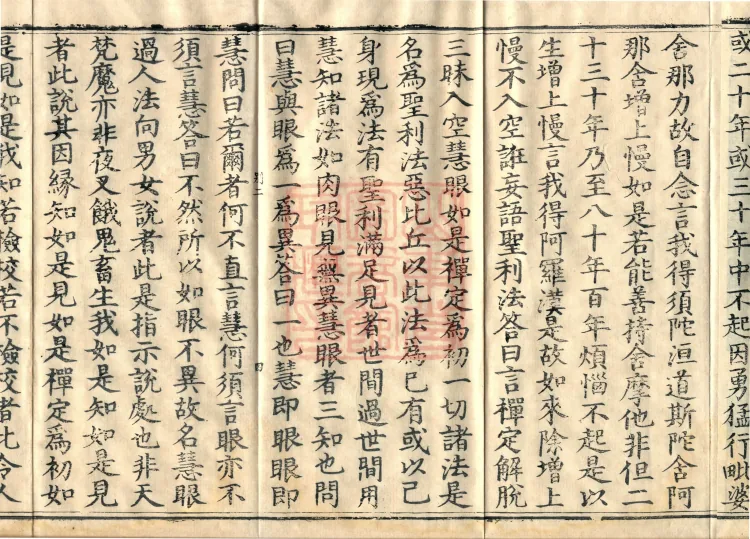 或二十年或三十年中不起因勇猛行毗婆
舍那力故自念言我得須陀洹道斯陀含阿
那含增上慢如是若能善持舍摩他非但二
十三十年乃至八十年百年煩惱不起是以
生增上慢言我得阿羅漢是故如來除增上
慢不入空誑妄語聖利法答曰言禪定解脫
三昧入空慧眼如是禪定為初一切諸法是
名為聖利法惡比丘以此法為已有或以己
身現為法有聖利滿足見者世間過世間用
慧知諸法如肉眼見無異慧眼者三知也問
曰慧與眼為一為異答曰一也慧即眼眼即
慧問曰若爾者何不直言慧何須言眼亦不
須言慧答曰不然所以如眼不異故名慧眼
過人法向男女說者此是指示說處也非天
梵魔亦非夜叉餓鬼畜生我如是知如是見
者此說其因緣知如是見如是禪定為初如
是見如是我知若檢校若不檢校者此令人